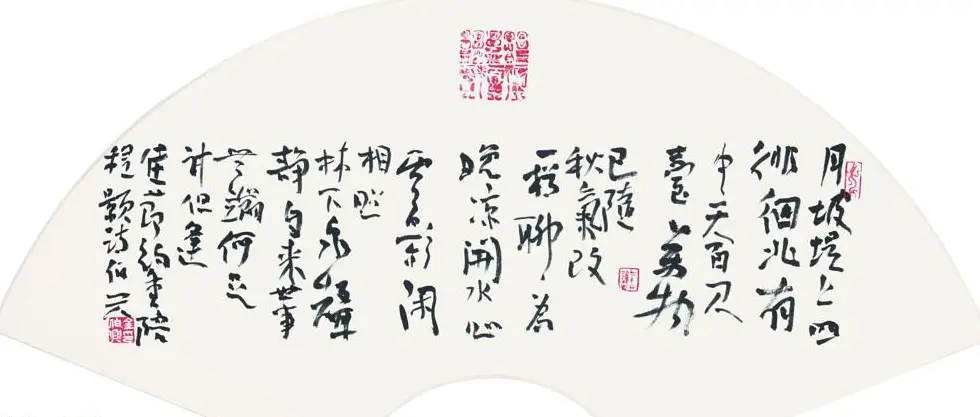 月坡堤上四
徘徊北有
中天百尺
臺萬物
已隨
秋氣改
一樽聊為
晚凉開水心
雲影闲
相照
林下泉聲
静自来世事
无端何足
计但逢
佳節约重陪
程颢诗伯